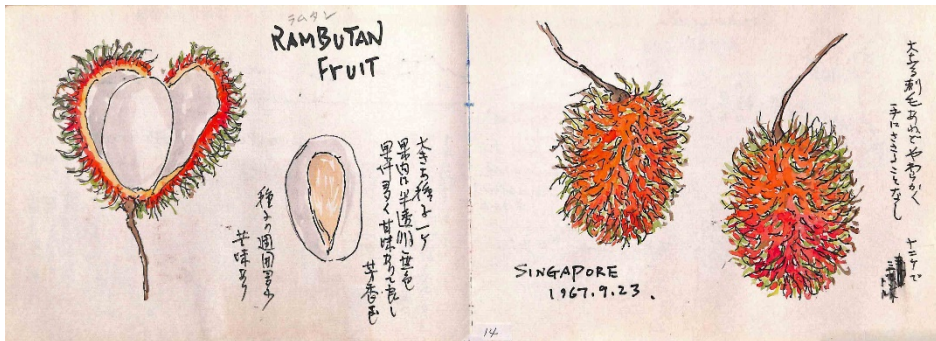 ラムタン
RAMBUTAN
FRUIT
大きな種子一ケ
果肉は半透明無色
果汁多く甘味ありて良し
芳香
種子の週囲多少
苦味あり
14
SINGAPORE
1967.9.23.
大なる刺毛あれどやわらかく
手にささることなし